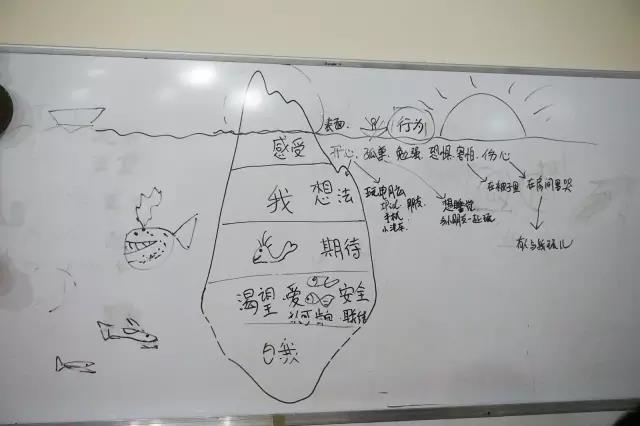 表面 行为
感受 开心. 孤单. 勉强. 恐惧. 害怕. 伤心
我 想法
期待
渴望 爱 安全
认可 联结
自我
玩电脑
朋友
手机
小汽车
想睡觉
和小朋友一起玩
在被子里
在房间里哭
有人与我玩儿